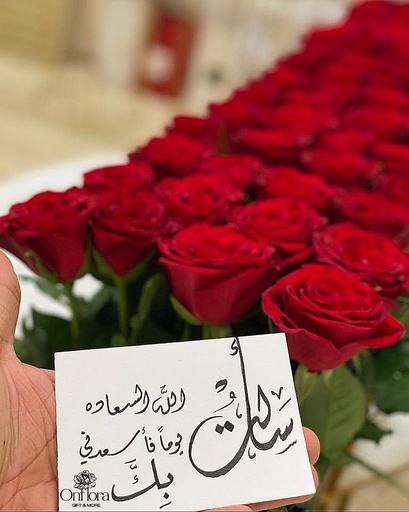 سألتُ
الله السعاده
يوماً فأسعدني
بِكَّ
Onflora
GIFT & MORE